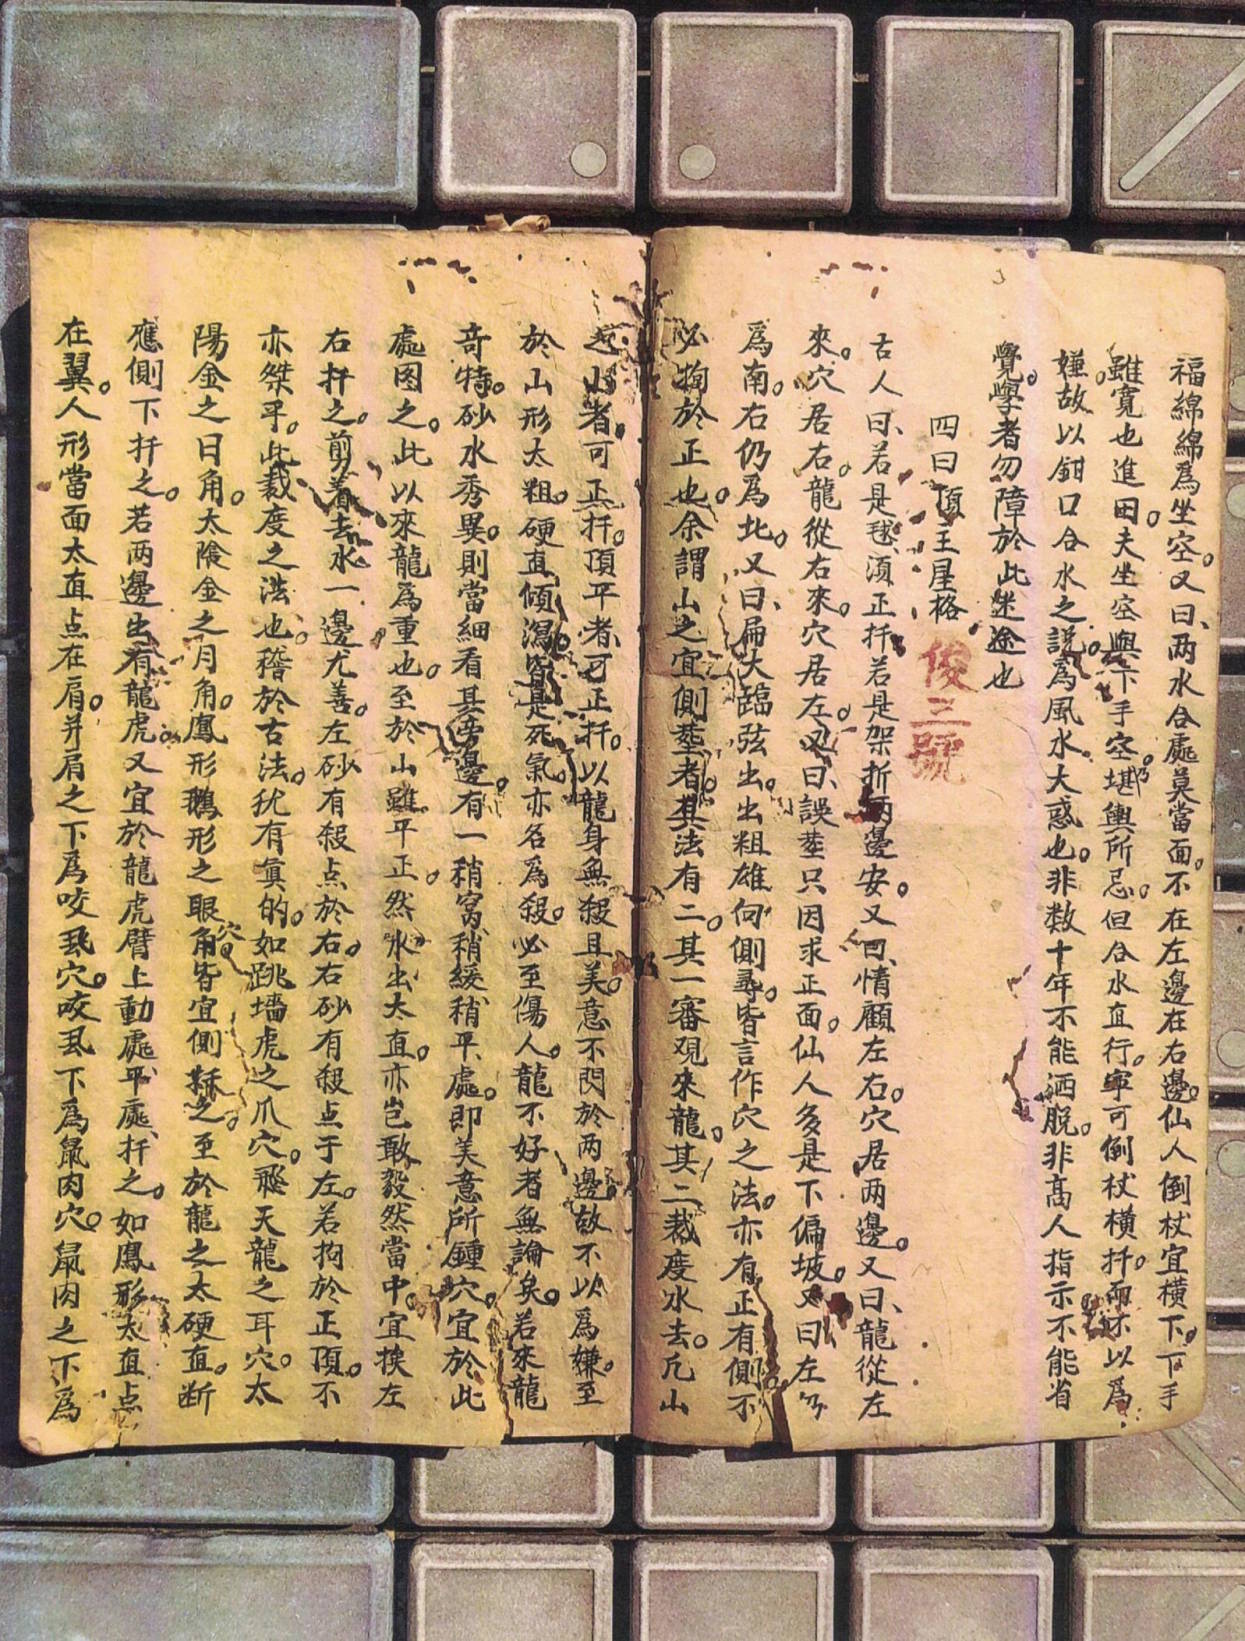 福綿綿爲坐空。又曰、两水合處莫當面。不在左邊在右邊。仙人倒杖宜横下。下手
雖寬也進田。夫坐空與下手空。乃堪輿所忌。但合水直行。寧可倒杖横扦。而不以爲
嫌。故以鉗口合水之說。爲風水大惑也。非数十年不能洒脱。非高人指示不能省
覺。學者勿障於此迷途也
四曰頂王星格
俊三號
古人曰、若是毬、湏正扦。若是架折两邊安。又曰、情顧左右。穴居两邊。又曰、龍從左
來。穴居右。龍從右來。穴居左。又曰、誤塟只因求正面。仙人多是下偏坡。又曰左
爲南。右仍爲北。又曰、扁大臨弦出。出粗雄向側尋。皆言作穴之法。亦有正有側不
必拘於正也。余謂山之宜側塟者。其法有二。其一審观來龍。其二裁度水去。凢山
山者。可正扦。頂平者、可正扦。以龍身無殺且美。意不閃於两邊。故不以爲嫌。至
於山形太粗。硬直傾瀉。皆是死氣。亦名爲殺。必至傷人。龍不好者無論矣。若來龍
奇特。砂水秀異。則當細看其旁邊。有一稍窩、稍緩、稍平、處。即美意所鍾。穴宜於此
處图之。此以來龍爲重也。至於山雖平正。然水出大直。亦岂敢毅然當中。宜挨左
右扦之。剪着去水一邊尤善。左砂有殺点於右。右砂有殺点于左。若拘於正頂。不
亦桀乎。此裁度之法也。稽於古法。犹有真的。如跳墙虎之爪穴。飛天龍之耳穴。太
陽金之日角。太陰金之月角。鳳形鵝形之眼角穴。皆宜側扦之。至於龍之太硬直。断
應側下扦之。若两邊出有龍虎。又宜於龍虎臂上動處、平處、扦之。如鳳形太直点
在翼。人形當面太直点在肩。并肩之下爲咬虱穴。咬虱下爲鼠肉穴。鼠肉之下爲